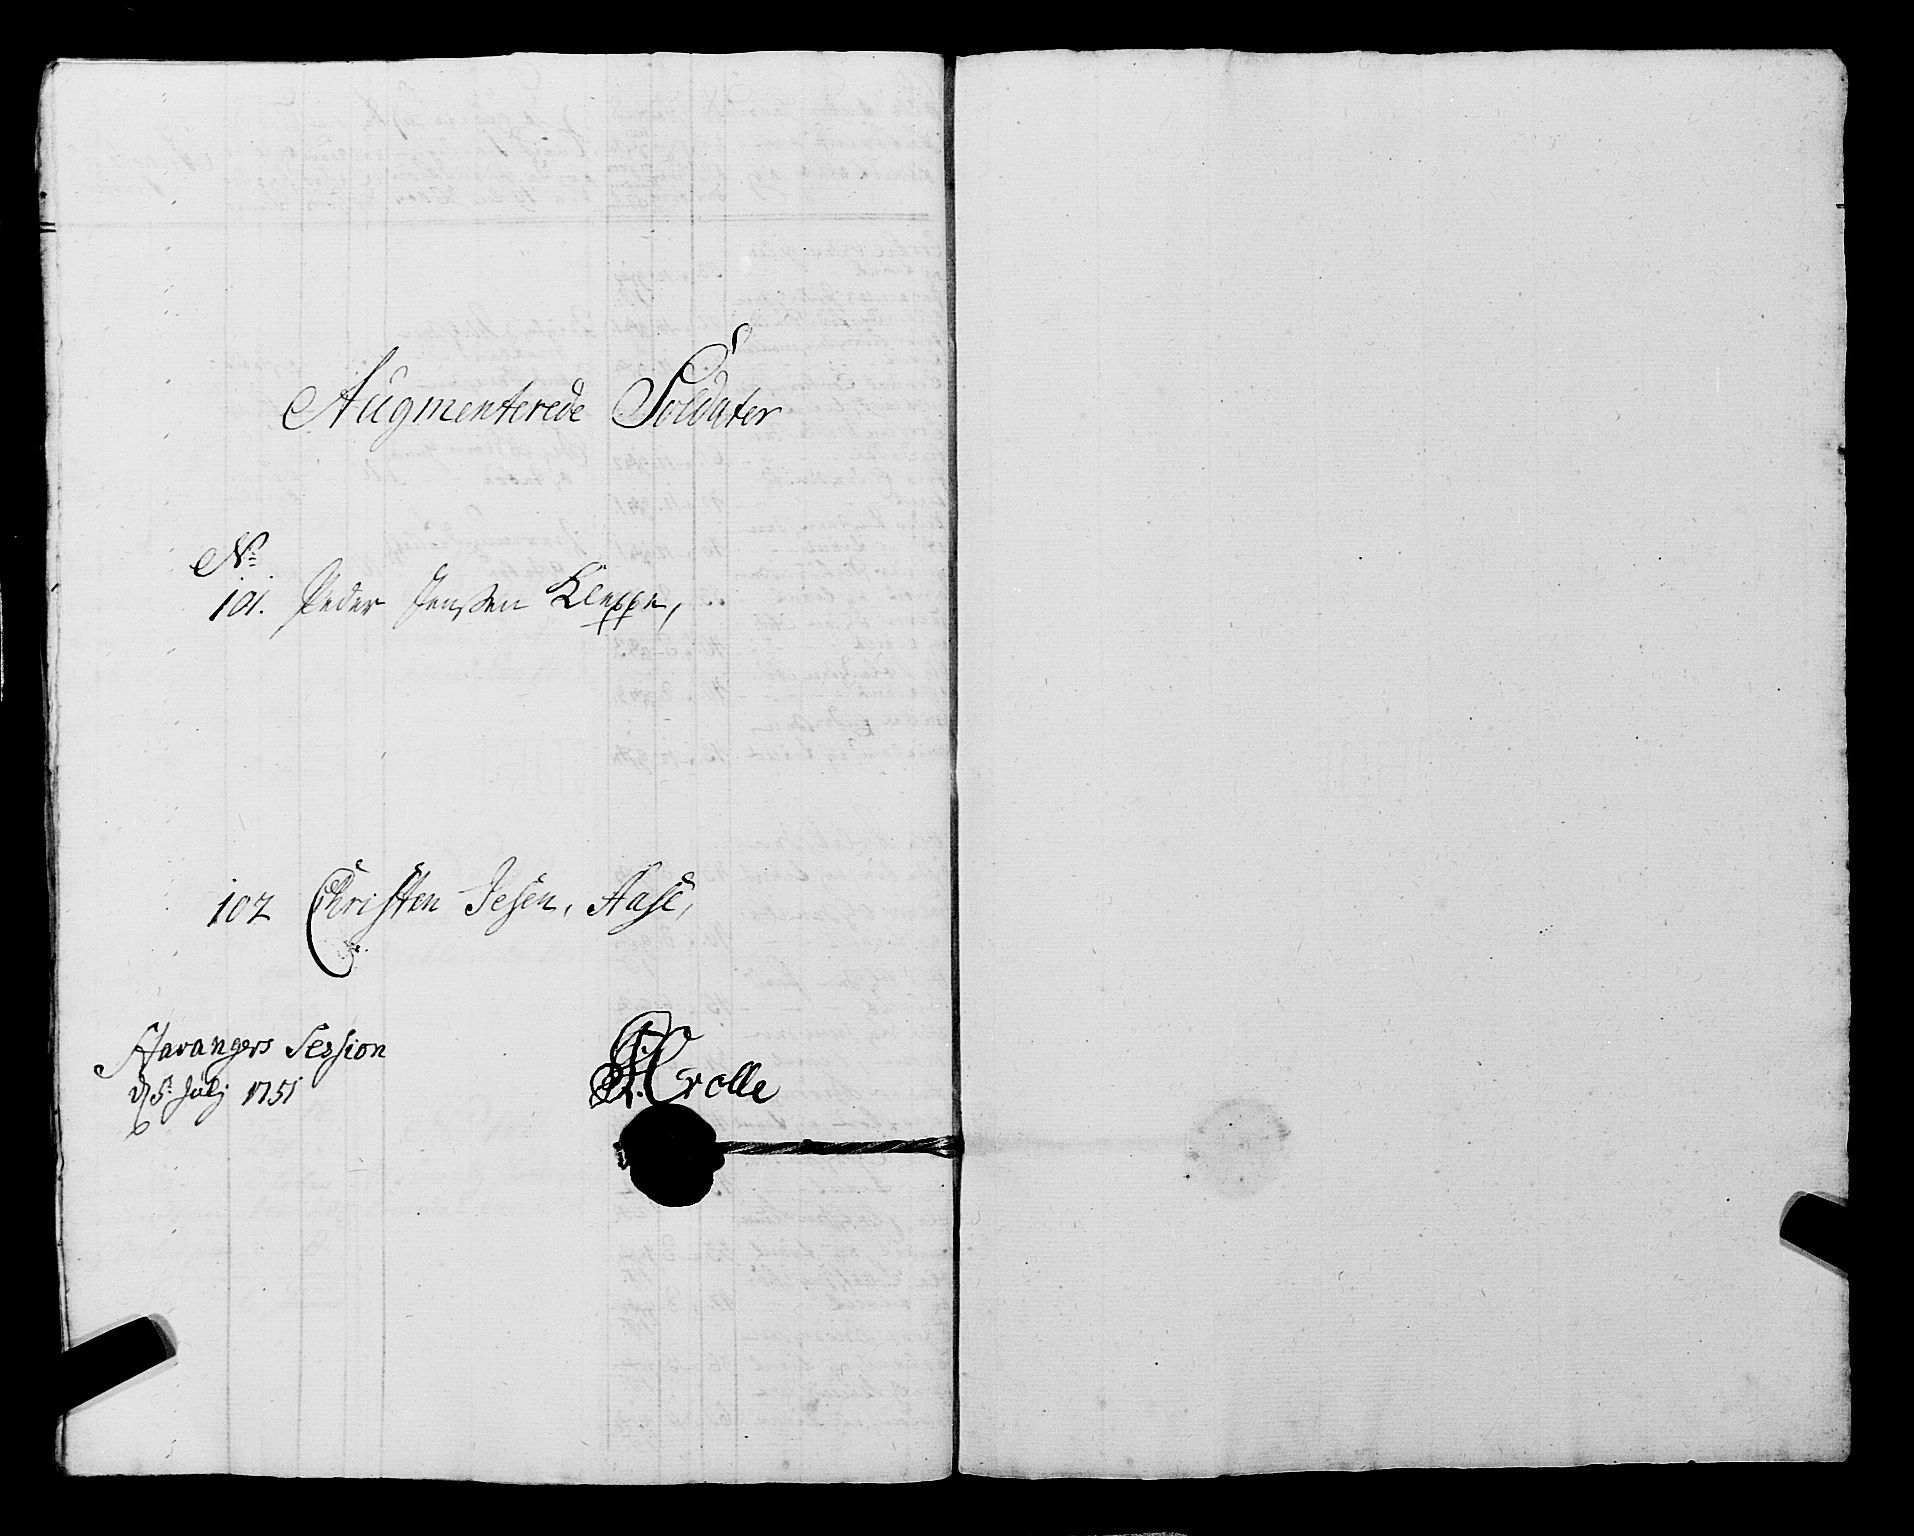 Augmenterede Soldater
No
101. Peder Jenssen Kleppe,
102 Christen Jesen, Aase,
Stavangers Session
d 5t Julj 1751
Krolle